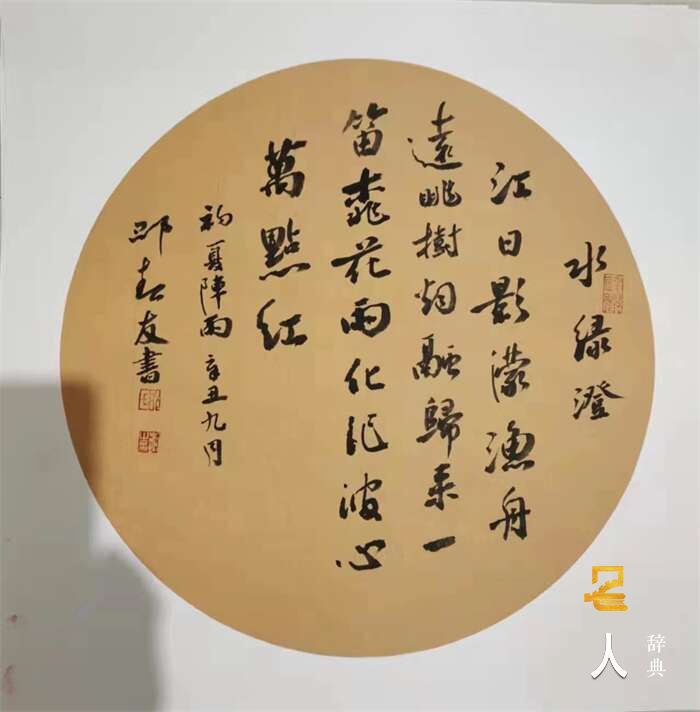 水绿澄
江日影濛渔舟
遠眺樹烟融歸来一
笛桃花雨化作波心
萬點紅
初夏陣雨 辛丑九月
邓友書
名人
辞典